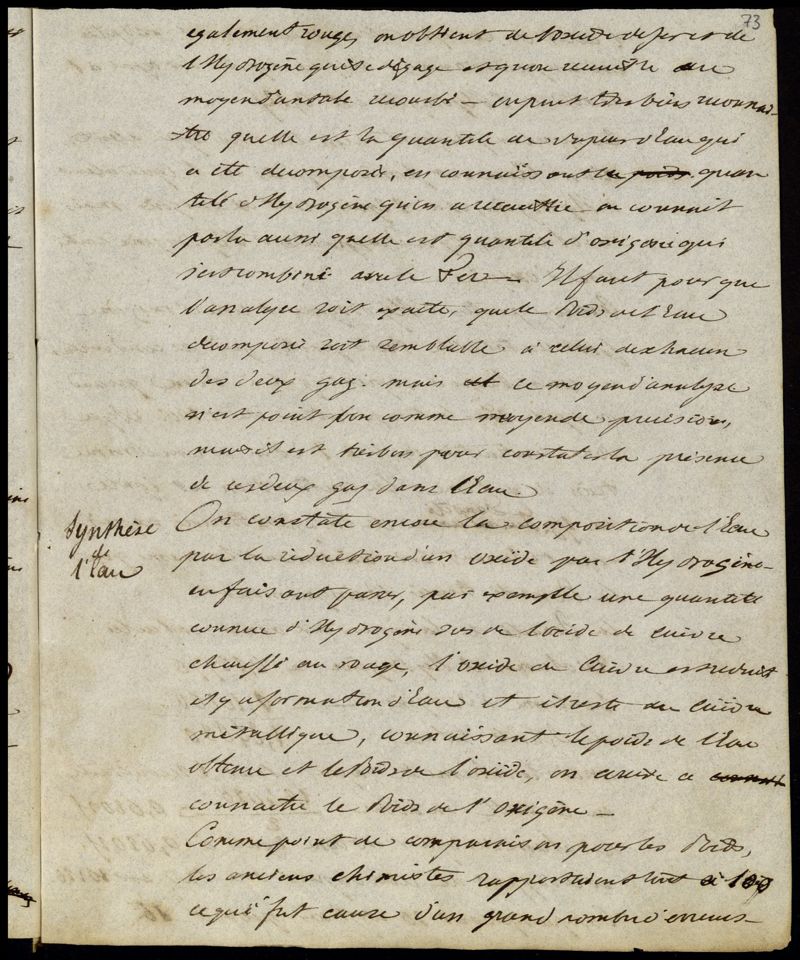 73
egalement rouge, on obtient de l'oxide de fer et de
l'Hydrogène qui se dégage et qu'on recueille au
moyen d'un tube recourbé – on peut très bien reconnai-
-tre quelle est la quantité de vapeur d'Eau qui
a été decomposée, en connaissant le poids quan
tité d'Hydrogène qu'on a recueillie on connait
par la aussi quelle est quantité d'oxigène qui
s'est combiné avec le Fer – Il faut pour que
l'analyse soit exacte, que le Poids de l'Eau
decomposé soit semblable à celui de chacun
des deux gaz. mais ce moyen d'analyse
n'est point bon comme moyen de precision,
mais il est très bon pour constater la présence
de ces deux gaz dans l'Eau
Synthèse
de
l'Eau
On constate encore la composition de l'Eau
par la réduction d'un oxide par l'Hydrogène –
en faisant passer, par exemple une quantité
connue d'Hydrogène sur de l'oxide de cuivre
chauffé au rouge, l'oxide de Cuivre est reduit
et y a formation d'Eau et il reste du Cuivre
métallique, connaissant le poids de l'Eau
obtenue et le Poids de l'oxide, on arrive a
connaitre le Poids de l'oxigène –
Comme point de comparaison pour les Poids,
les anciens chimistes rapportaient tout à 100
ce qui fut cause d'un grand nombre d'erreurs –